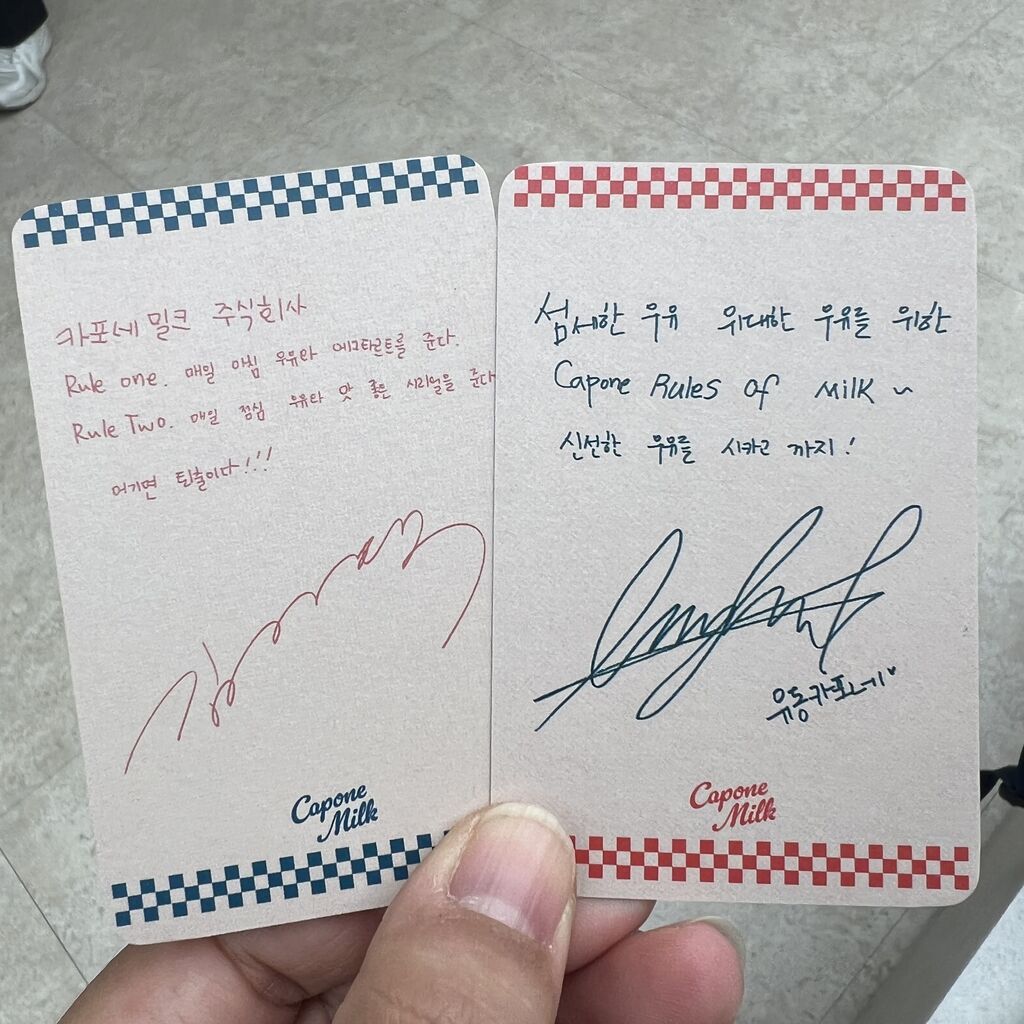 카포네 밀크 주식회사
Rule one. 매일 아침 우유와 에그타르트를 준다.
Rule Two. 매일 점심 우유와 맛 좋은 시리얼을 준다
어기면 퇴출이다!!!
Capone
Milk
섬세한 우유 위대한 우유를 위한
Capone Rules of Milk ~
신선한 우유를 시카고 까지!
유동카포네♥
Capone
Milk